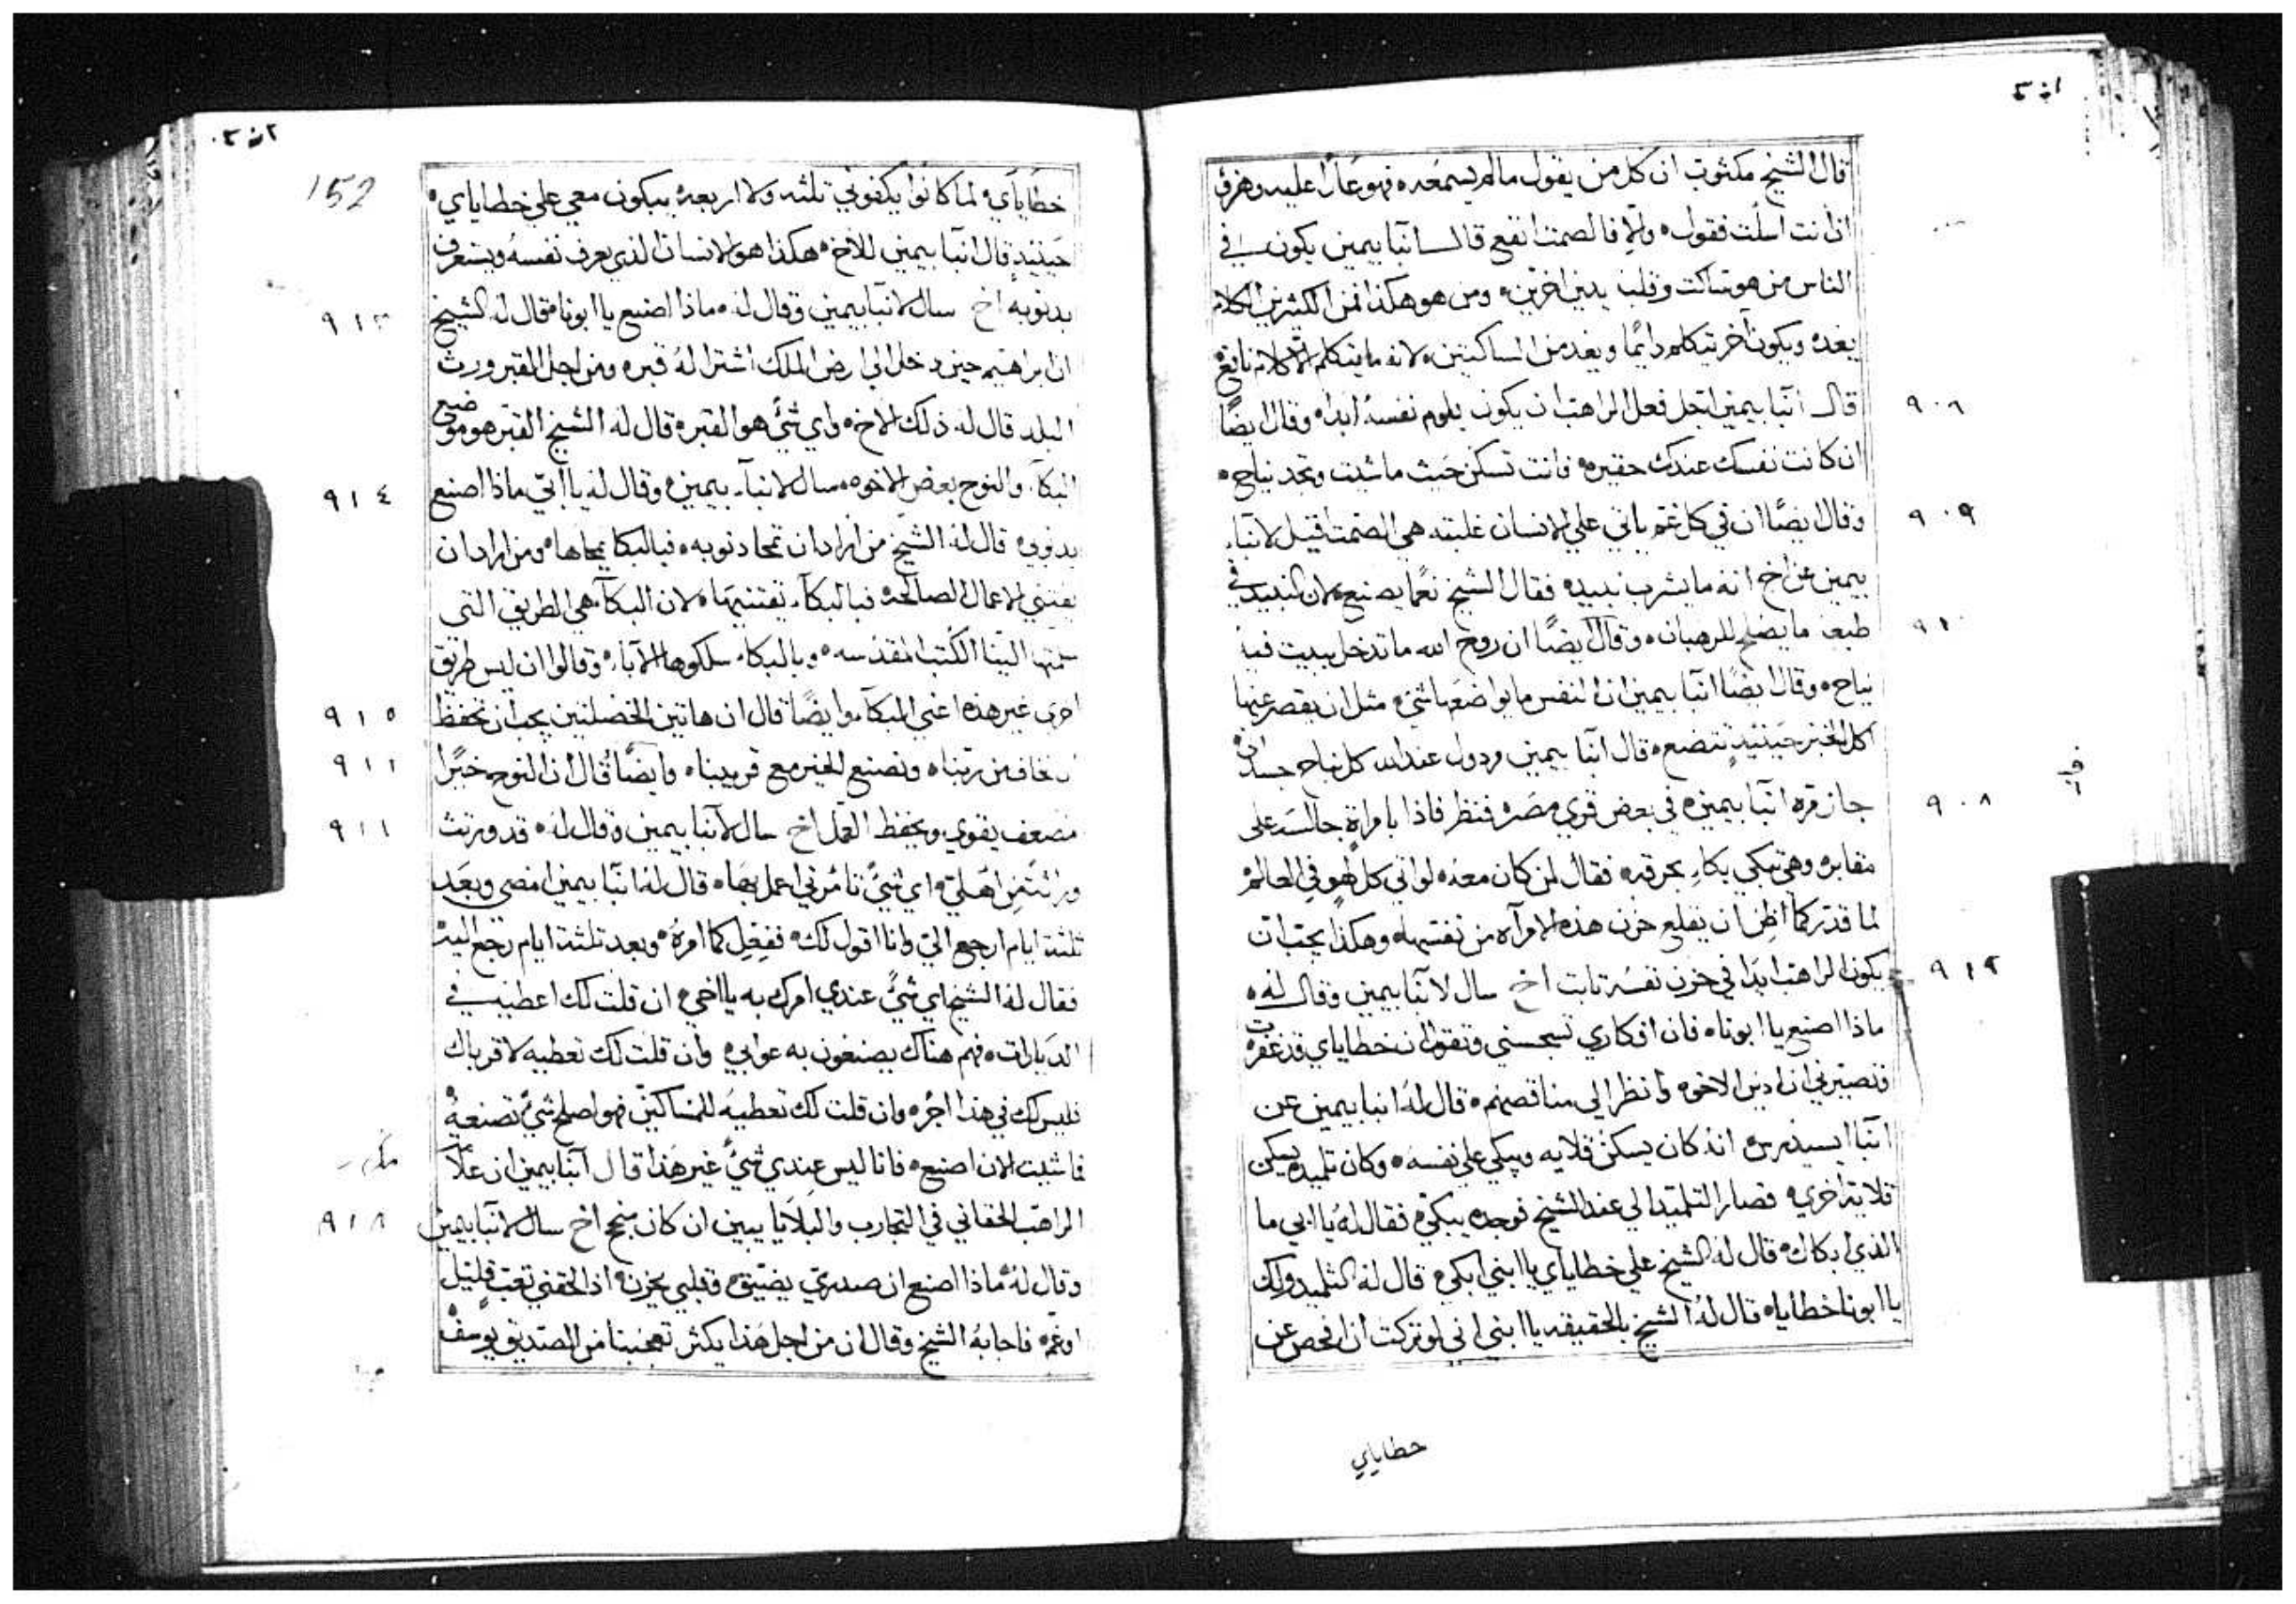 قال الشيخ مكتوب ان كل من يقول مالم يسمعه ه فهو عارا عليه وهزؤ
ان انت اسلت فقول ه والا فالصمت انفع قال انبا بيمين يكون في
الناس من هو ساكت وقلبه يدين اخرين ه ومن هو هكذا فمن الكثيرين الكلام
يعد ه ويكون آخر يتكلم دايمًا ويعد من الساكتين ه لانه ما يتكلم الا كلام نافع
٩٠٨ قال انبا بيمين اجل فعل الراهب ان يكون يلوم نفسه ابدا ه وقال ايضًا
ان كانت نفسك عندك حقيره ه فانت تسكن حيث ماشيت وتجد نياح ه
٩٠٩ وقال ايضًا ان في كل غم ياتي علي الانسان غلبته هي الصمت قيل لانبا
بيمين عن اخ انه ما يشرب نبيد ه فقال الشيخ نعما يصنع ه لان النبيد في
٩١٠ طبعه ما يصلح للرهبان ه وقال ايضًا ان روح الله ما تدخل بيت فيه
نياح ه وقال ايضًا انبا بيمين ان النفس ما يواضعها شي ه مثل ان يقصر عنها
اكل الخبز حينيدٍ تتضع ه قال انبا بيمين مردول عند الله كل نياح جسداني
٩٠٨ جاز مره انبا بيمين ه في بعض قري مصر ه فنظر فاذا بامراةٍ جالسه علي
مقابر ه وهي تبكي بكاءٍ بحرقه ه فقال لمن كان معه ه لو اتي كل لهوٍ في العالم
لما قدر كما اظن ان يقلع حزن هذه الامرآه من نفسها ه وهكذا يجب ان
٩١٢ يكون الراهب ابدا في حزن نفسه ثابت اخ سال لانبا بيمين وقال له ه
ماذا اصنع يا ابونا ه فان افكاري تسجسني وتقول ان خطاياي قد غفرت
فتصيرني ان ادين الاخوه وانظر الي مناقصهم ه قال له انبا بيمين عن
انبا ايسيدرس ه انه كان يسكن قلايه ويبكي علي نفسه ه وكان تلميده يسكن
قلايه اخري ه فصار التلميد الي عند الشيخ فوجده يبكي ه فقال له يا ابي ما
الذي ابكاك ه قال له الشيخ علي خطاياي يا ابني ابكي ه قال له التلميد ولك
يا ابونا خطايا ه قال له الشيخ بالحقيقه يا ابني اني لو تركت ان افحص عن
خطاياي
152
خطاياي ه لما كانوا يكفوني تلثه ولا اربعه يبكون معي علي خطاياي ه
حينيدٍ قال انبا بيمين للاخ ه هكذا هو الانسان الذي يعرف نفسه ويعترف
٩١٣ بدنوبه اخ سال لانبا بيمين وقال له ه ماذا اصنع يا ابونا ه قال له الشيخ
ان ابراهيم حين دخل الي ارض الملك اشترا له قبر ه ومن اجل القبر ورث
البلد قال له ذلك الاخ ه واي شيً هو القبر ه قال له الشيخ القبر هو موضع
٩١٤ البكآ والنوح بعض الاخوه ه سال لانبا بيمين ه وقال له يا ابي ماذا اصنع
بدنوبي ه قال له الشيخ من اراد ان تمحا دنوبه ه فبالبكا يمحاها ه ومن اراد ان
يقتني الاعمال الصالحه فبالبكآ يقتنيها ه لان البكآ هي الطريق التي
سلمتها الينا الكتب المقدسه ه وبالبكا سلكوها الآباء ه وقالوا ان ليس طريق
٩١٥ اخري غير هذه اعني البكآ ه وايضًا قال ان هاتين الخصلتين يجب ان نحفظ
٩١١ ان نخاف من ربنا ه ونصنع الخير مع قريبنا ه وايضًا قال ان النوح خيرًا
٩١١ مضعف يقوي ويحفظ العمل اخ سال لآنبا بيمين وقال له ه قد ورثت
وراثه من اهلي ه اي شيً تامرني اعمل بها ه قال له انبا بيمين امضي وبعد
تلثة ايام ارجع اليّ وانا اقول لك ه ففعل كما امره ه وبعد تلثة ايام رجع اليه
فقال له الشيخ اي شيً عندي امرك به يا اخي ه ان قلت لك اعطيه في
الديارات ه فهم هناك يصنعون به عوابي ه وان قلت لك تعطيه لاقرباك
فليس لك في هذا اجر ه وان قلت لك تعطيه للمساكين فهو اصلح شيً تصنعه
فما شيت الان اصنع ه فانا ليس عندي شيً غير هذا قال آنبا بيمين ان علآ
٩١٨ الراهب الحقاني في التجارب والبلايا يبين ان كان ينجح اخ سال لانبا بيمين
وقال له ه ماذا اصنع ان صدري يضيق ه وقلبي يحزن ه اذا لحقني تعب قليل
او غم ه فاجابه الشيخ وقال ان من اجل هذا يكثر تعجبنا من الصديق يوسف